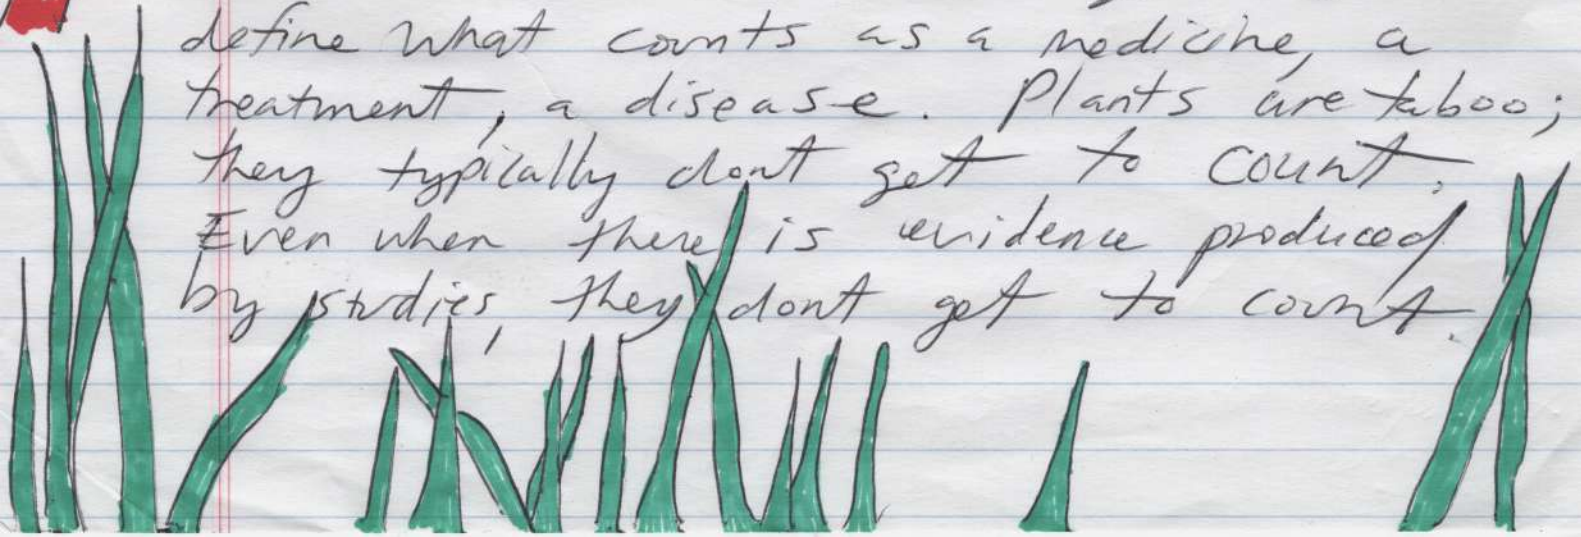 define what counts as a medicine, a
treatment, a disease. Plants are taboo;
they typically dont get to count.
Even when there is evidence produced
by studies, they dont get to count.